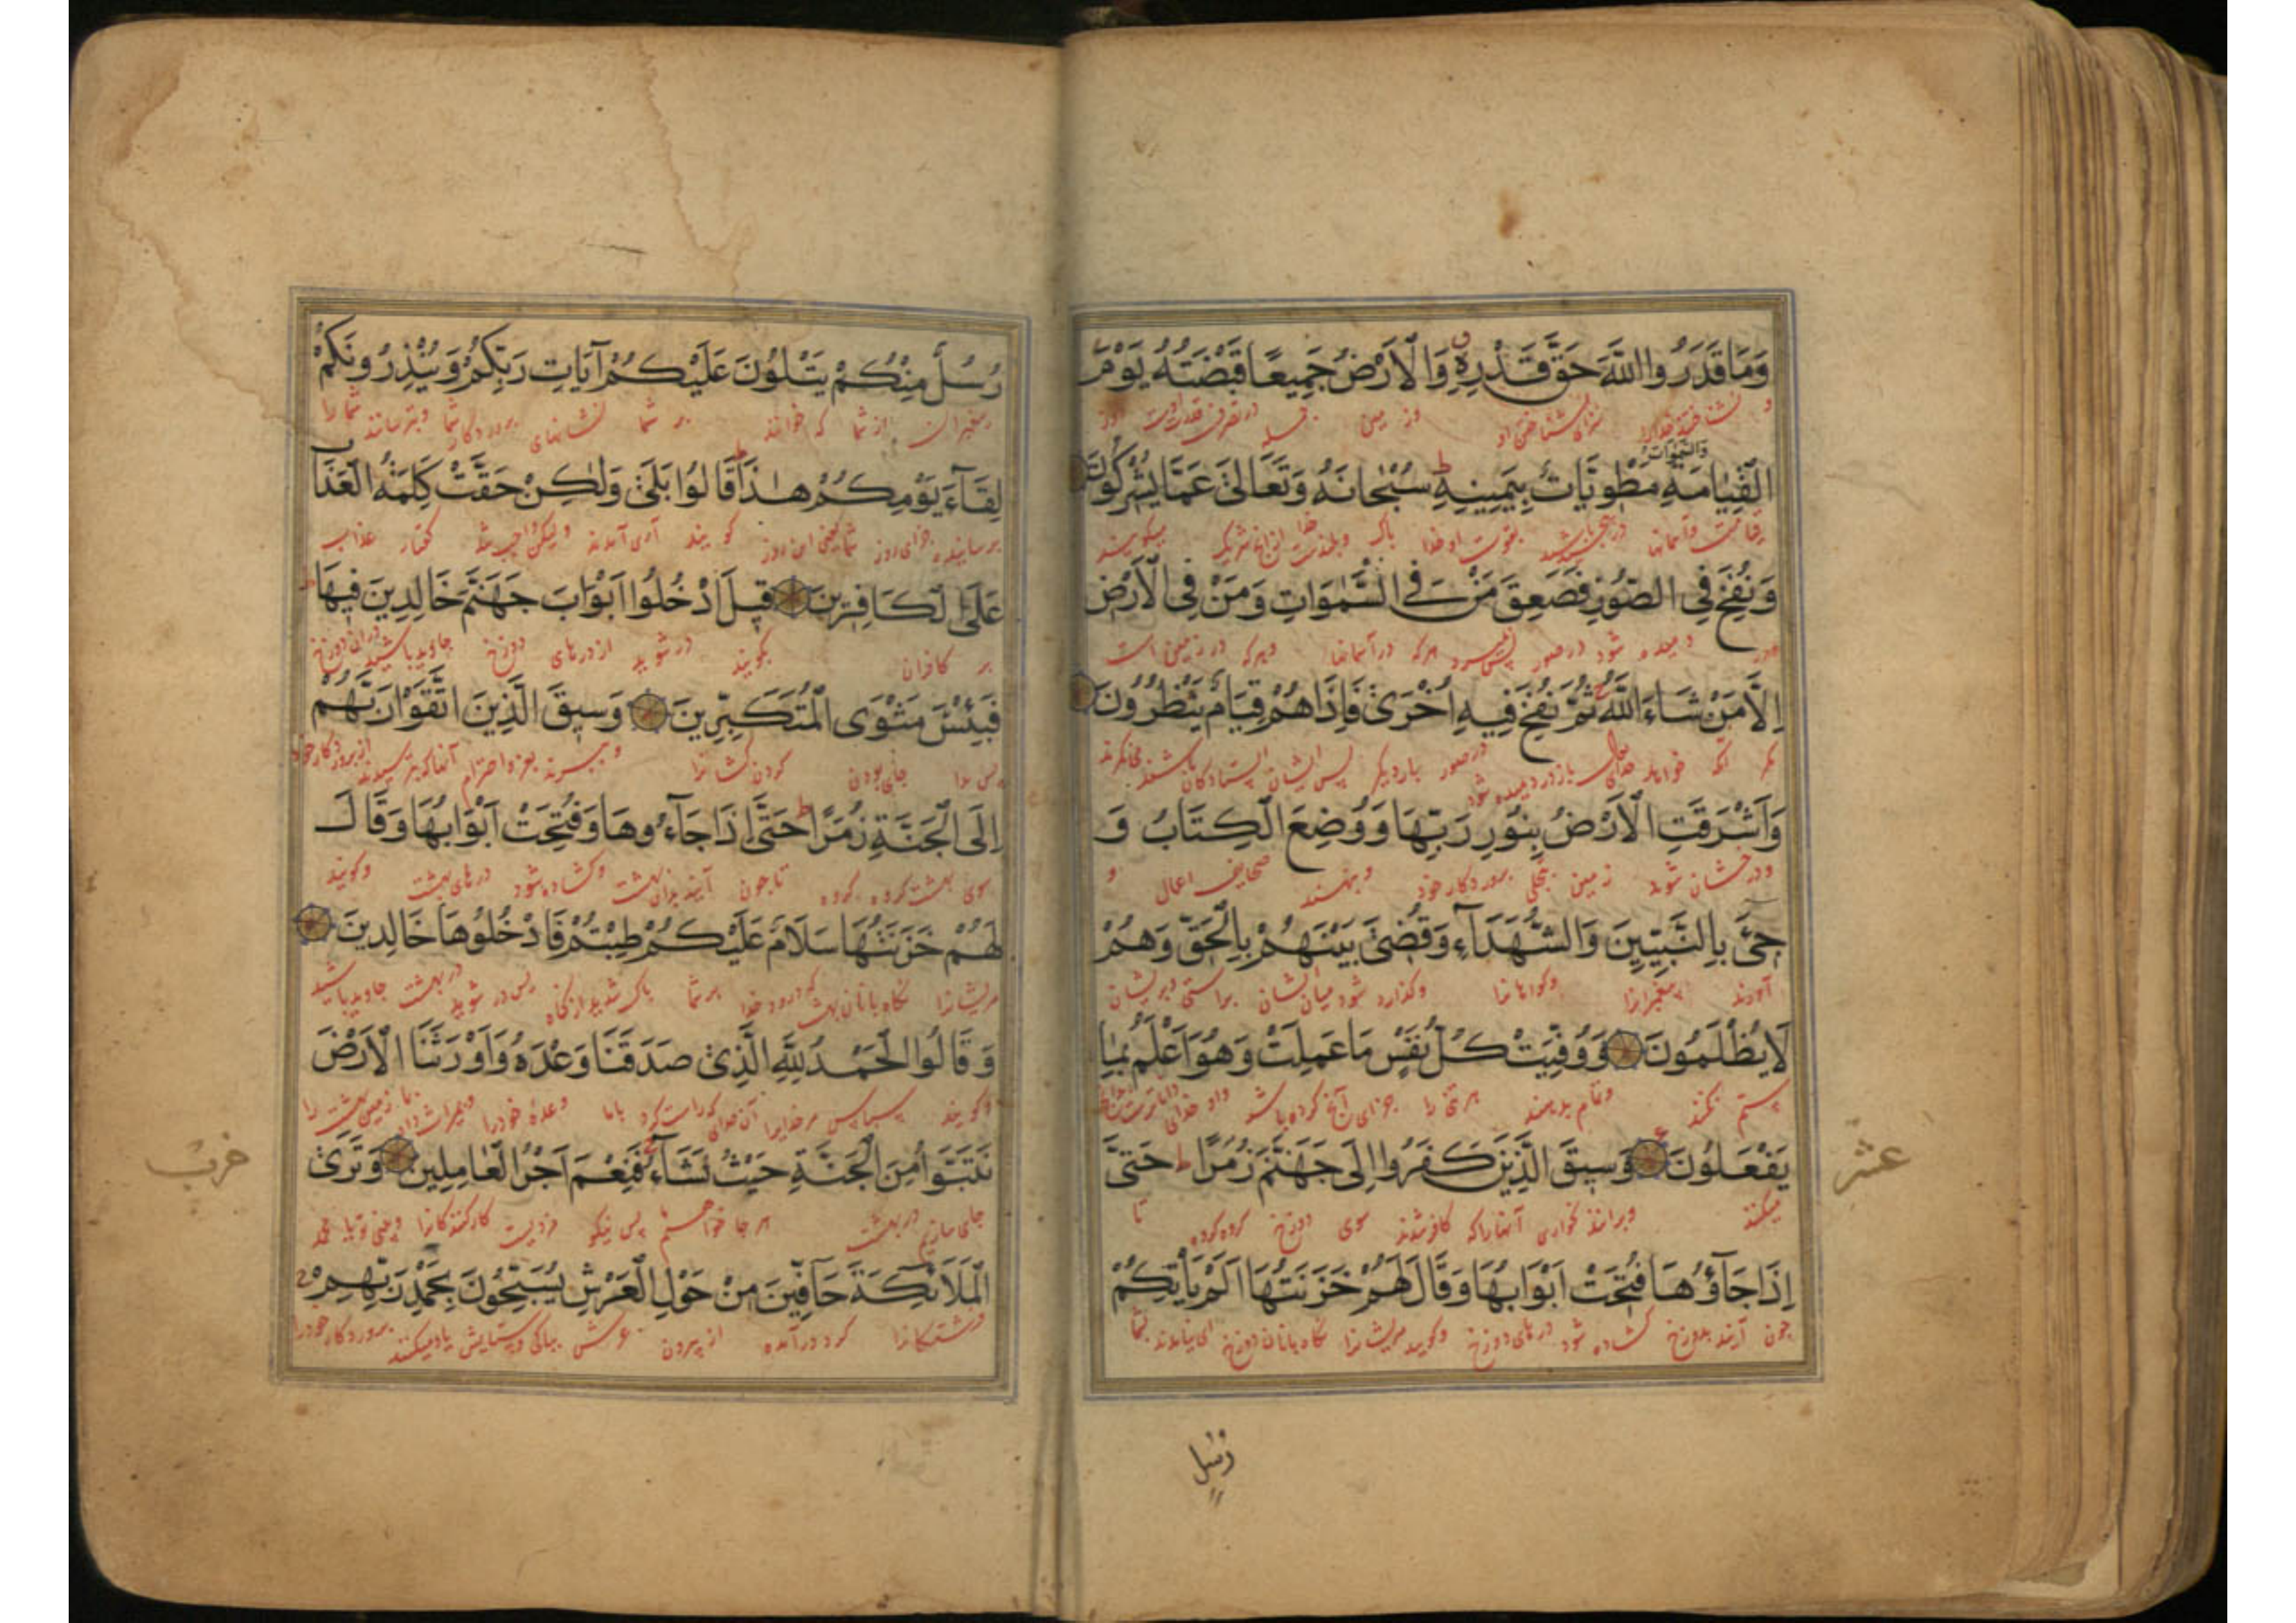 وَمَا قَدَرُوا اللَّهَ حَقَّ قَدْرِهِ وَالْاَرْضُ جَمِيعًا قَبْضَتُهُ يَوْمَ
و نشناختند خدا را سزای شناختن او و زمین در تصرف قدرت اوست روز
وَالسَّمٰوَاتُ
الْقِيٰامَةِ مَطْوِيَّاتٌ بِيَمِينِهِ سُبْحَانَهُ وَتَعَالَىٰ عَمَّا يُشْرِكُونَ
قیامت و آسمانها بقوت او خدا پاک میگویند
وَنُفِخَ فِي الصُّورِ فَصَعِقَ مَنْ فِي السَّمٰوَاتِ وَمَنْ فِي الْاَرْضِ
دمیده شود در صور هر که در آسمانها و هر که در زمین است
اِلَّا مَنْ شَاءَ اللَّهُ ثُمَّ نُفِخَ فِيهِ اُخْرَىٰ فَاِذَا هُمْ قِيَامٌ يَنْظُرُونَ
مگر آنکه خواهد خدای باز در دمیده شود در صور بار دیگر پس ایشان ایستادگان باشند
وَاَشْرَقَتِ الْاَرْضُ بِنُورِ رَبِّهَا وَوُضِعَ الْكِتَابُ وَ
و درخشان شود زمین بتجلی پروردگار خود و بنهند صحایف اعمال و
جِيءَ بِالنَّبِيِّينَ وَالشُّهَدَاءِ وَقُضِيَ بَيْنَهُمْ بِالْحَقِّ وَهُمْ
آورند پیغمبرانرا و گواهانرا و گذارده شود میان ایشان براستی و بر ایشان
لَا يُظْلَمُونَ وَوُفِّيَتْ كُلُّ نَفْسٍ مَا عَمِلَتْ وَهُوَ اَعْلَمُ بِمَا
ستم نکنند و تمام بدهند هر تنی را جزای آنچ کرده باشد
يَفْعَلُونَ وَسِيقَ الَّذِينَ كَفَرُوا اِلَىٰ جَهَنَّمَ زُمَرًا حَتَّىٰ
میکنند و برانند بخواری آنها را که کافر شدند سوی دوزخ گروه گروه تا
عشر
اِذَا جَاؤُهَا فُتِحَتْ اَبْوَابُهَا وَقَالَ لَهُمْ خَزَنَتُهَا اَلَمْ يَأْتِكُمْ
چون آیند بدوزخ گشاده شود درهای دوزخ و گویند مریشانرا نگاهبانان دوزخ ای نیامدند بشما
رُسُلٌ مِنْكُمْ يَتْلُونَ عَلَيْكُمْ آيَاتِ رَبِّكُمْ وَيُنْذِرُونَكُمْ
پیغمبران از شما که خوانند بر شما نشانهای پروردگار شما و بترسانند شما را
لِقَاءَ يَوْمِكُمْ هٰذَا قَالُوا بَلَىٰ وَلٰكِنْ حَقَّتْ كَلِمَةُ الْعَذَابِ
جزای روز شما یعنی این روز گویند آری آمدند ولیکن واجب شد گفتار عذاب
عَلَى الْكَافِرِينَ قِيلَ ادْخُلُوا اَبْوَابَ جَهَنَّمَ خَالِدِينَ فِيهَا
بر کافران بگویند در شوید از درهای دوزخ جاوید باشید در آن دوزخ
فَبِئْسَ مَثْوَى الْمُتَكَبِّرِينَ وَسِيقَ الَّذِينَ اتَّقَوْا رَبَّهُمْ
پس بدا جای بودن گردن کشانرا و ببرند بعز و احترام آنها که بترسیدند از پروردگار خود
اِلَى الْجَنَّةِ زُمَرًا حَتَّىٰ اِذَا جَاءُوهَا وَفُتِحَتْ اَبْوَابُهَا وَقَالَ
سوی بهشت گروه گروه تا چون آیند بدان بهشت و گشاده شود درهای بهشت و گویند
لَهُمْ خَزَنَتُهَا سَلَامٌ عَلَيْكُمْ طِبْتُمْ فَادْخُلُوهَا خَالِدِينَ
مریشانرا نگاهبانان بهشت که درود خدا بر شما پاک شدید از گناه پس در شوید در بهشت جاوید باشید
وَقَالُوا الْحَمْدُ لِلَّهِ الَّذِي صَدَقَنَا وَعْدَهُ وَاَوْرَثَنَا الْاَرْضَ
و گویند سپاس مر خدایرا آن خدای که راست کرد با ما وعده خود را و میراث داد بما زمین بهشت را
نَتَبَوَّأُ مِنَ الْجَنَّةِ حَيْثُ نَشَاءُ فَنِعْمَ اَجْرُ الْعَامِلِينَ وَتَرَى
جای سازیم در بهشت هر جا خواهیم پس نیکو مزدیست کارکنندگانرا
حزب
الْمَلَائِكَةَ حَافِّينَ مِنْ حَوْلِ الْعَرْشِ يُسَبِّحُونَ بِحَمْدِ رَبِّهِمْ
فرشتگانرا گرد درآمده از پیرون عرش بپاکی و ستایش یاد میکنند پروردگار خود را